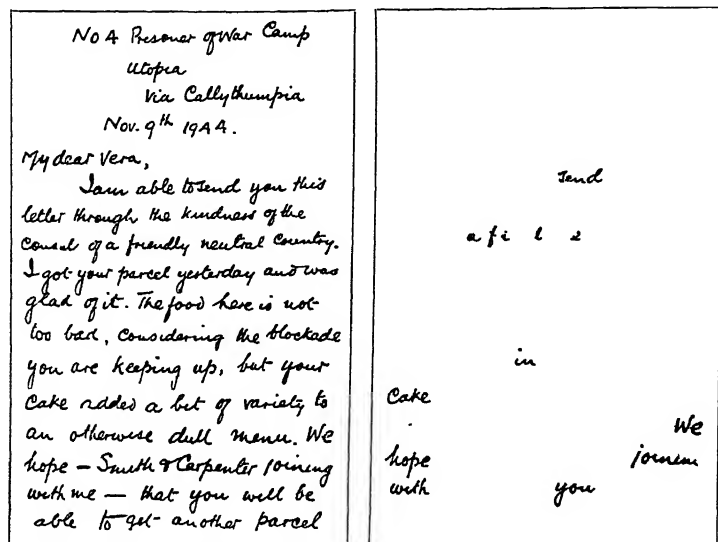 No 4 Prisoner of War Camp
Utopia
Via Callythumpia
Nov. 9th 1944.
My dear Vera,
I am able to send you this
letter through the kindness of the
Consul of a friendly neutral Country.
I got your parcel yesterday and was
glad of it. The food here is not
too bad, considering the blockade
you are keeping up, but your
Cake added a bit of variety to
an otherwise dull menu. We
hope — Smith & Carpenter joining
with me — that you will be
able to get another parcel
send
a f i l e
in
Cake
We
hope joining
with you